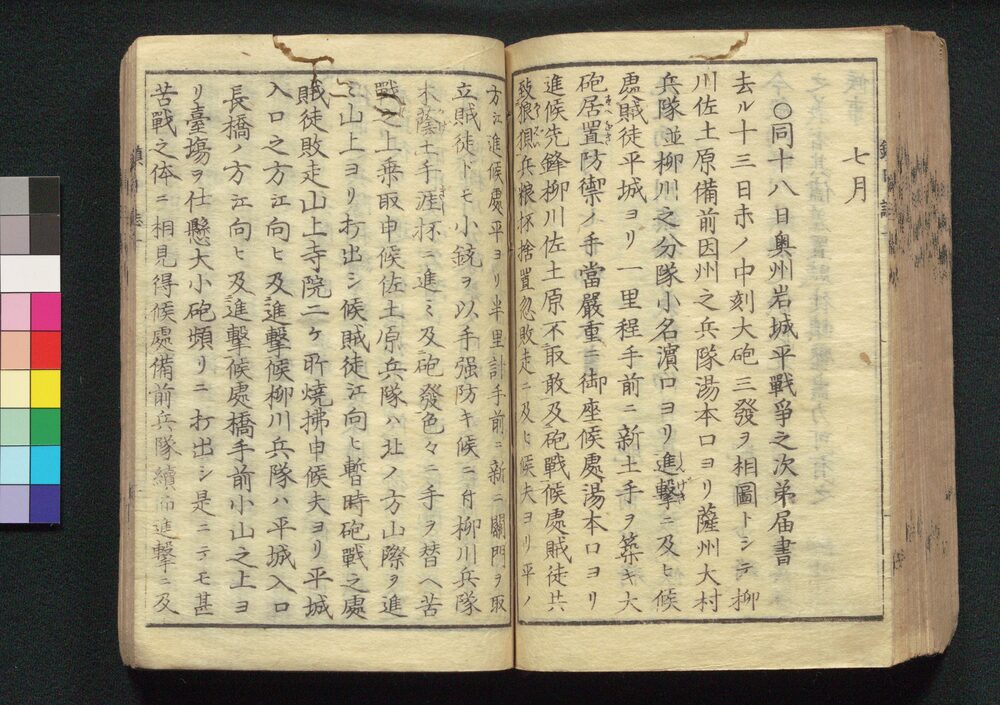 七月
○同十八日奥州岩城平戰爭之次第届書
去ル十三日未ノ中刻大砲三發ヲ相圖トシテ柳
川佐土原備前因州之兵隊湯本口ヨリ薩州大村
兵隊並柳川之分隊小名濵口ヨリ進撃ニ及ヒ候
處賊徒平城ヨリ一里程手前ニ新土手ヲ築キ大
砲居置防禦ノ手當嚴重ニ御座候處湯本口ヨリ
進候先鋒柳川佐土原不取敢及砲戰候處賊徒共
致狼狽兵粮杯捨置忽敗走ニ及ヒ候夫ヨリ平ノ
方江進候處平ヨリ半里計手前ニ新ニ關門ヲ取
立賊徒トモ小銃ヲ以手强防キ候ニ付柳川兵隊
土手涯杯ニ進ミ及砲發色々ニ手ヲ替ヘ苦
戰之上乗取申候佐土原兵隊ハ北ノ方山際ヲ進
ミ山上ヨリ打出シ候賊徒江向ヒ暫時砲戰之處
賊徒敗走山上寺院二ケ所焼拂申候夫ヨリ平城
入口之方江向ヒ及進撃候柳川兵隊ハ平城入口
長橋ノ方江向ヒ及進撃候處橋手前小山之上ヨ
リ臺塲ヲ仕懸大小砲頻リニ打出シ是ニテモ甚
苦戰之体ニ相見得候處備前兵隊續而進撃ニ及